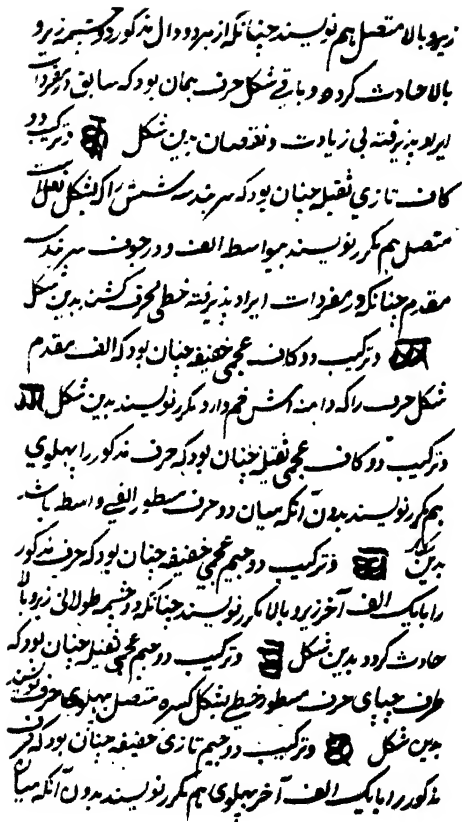 زیر و بالا متصل بهم نویسند چنانکه از هر دو دال مذکور دو چشمه زیر و
بالا حادث کردد و باقی شکل حرف همان بود که سابق در مفردات
ایراد پذیرفته بی زیادت و نقصان بدین شکل و ترکیب دو
کاف تازی ثقیله چنان بود که سر هندسه شش را که بشکل
متصل بهم مکرر نویسند بیواسطه الف و در جوف سر هندسه
مقدم چنانکه در مفردات ایراد پذیرفته خطی کشند بدین شکل
و ترکیب دو کاف عجمی خفیفه چنان بود که الف مقدم
شکل حرف را که دامنه اش خم دارد مکرر نویسند بدین شکل
و ترکیب دو کاف عجمی ثقیله چنان بود که حرف مذکور را پهلوی
هم مکرر نویسند بدون آنکه میان دو حرف مسطور الفی واسطه باشد
بدین شکل و ترکیب دو جیم عجمی خفیفه چنان بود که حرف مذکور
را با یک الف آخر زیر و بالا مکرر نویسند چنانکه دو چشمه طولانی زیر و بالا
حادث کردد بدین شکل و ترکیب دو جیم عجمی ثقیله چنان بود که
طرف چپای حرف مسطور خطی بشکل کسره متصل پهلوی حرف نویسند
بدین شکل و ترکیب دو جیم تازی خفیفه چنان بود که حرف
مذکور را با یک الف آخر پهلوی هم مکرر نویسند بدون آنکه میان